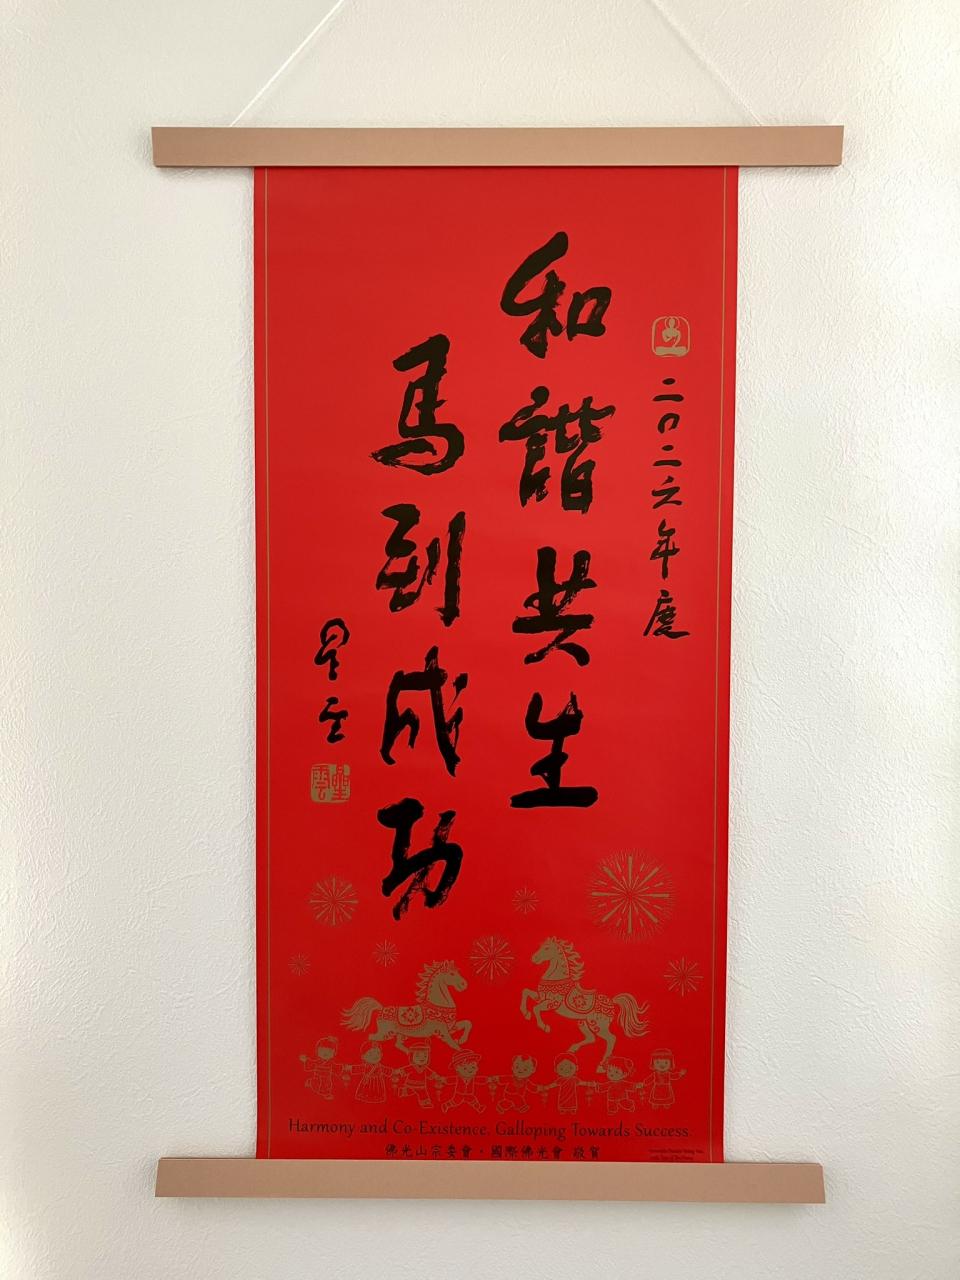 二〇二六年度
和諧共生
馬到成功
星雲
星雲
Harmony and Co-Existence. Galloping Towards Success.
佛光山宗委會・國際佛光會 敬賀